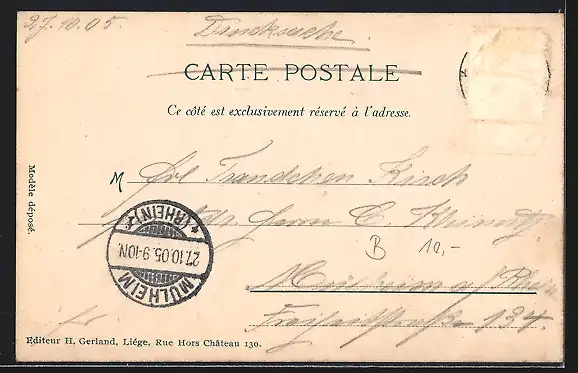 27.10.05. Drucksache
CARTE POSTALE
Ce côté est exclusivement réservé à l'adresse.
M Frl. Kirch
Adr. Herrn C.
B 10,-
Mülheim a/ Rhein
134.
MÜLHEIM
27.10.05.9-10N.
*(RHEIN)*
Modèle déposé.
Editeur H. Gerland, Liége, Rue Hors Château 130.